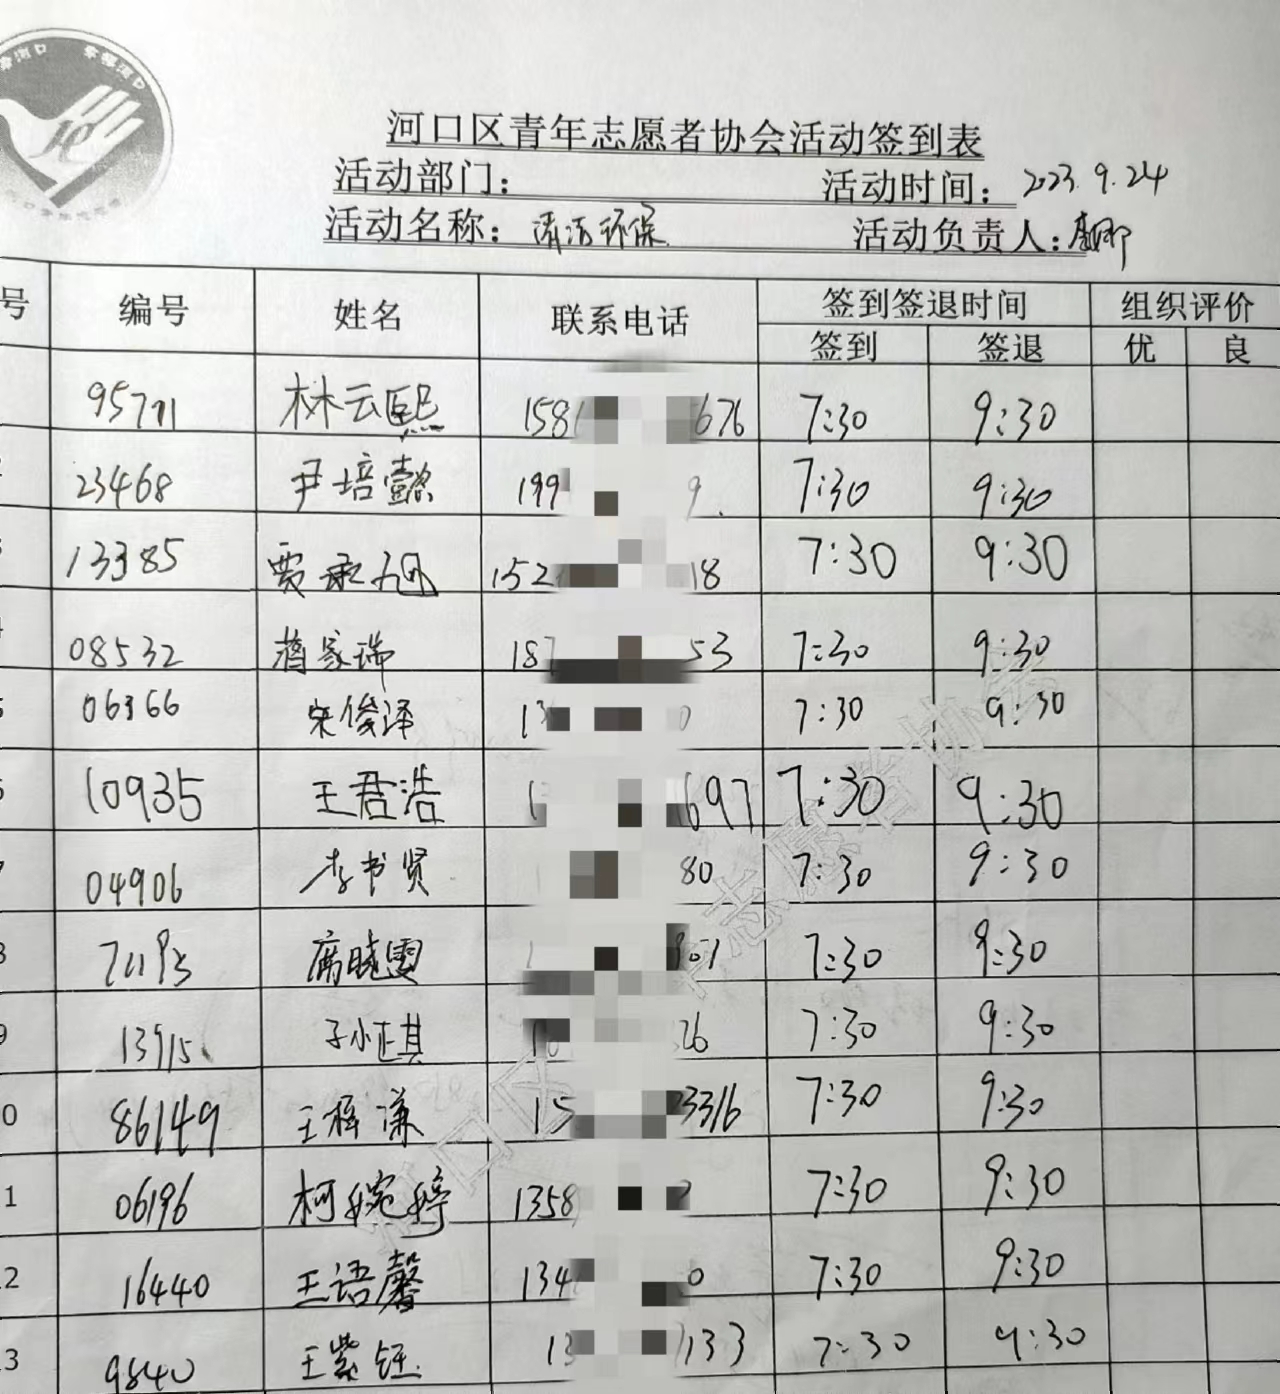 河口区青年志愿者协会活动签到表
活动部门： 活动时间：2023.9.24
活动名称：清洁环保 活动负责人：
号 编号 姓名 联系电话 签到签退时间 组织评价
签到 签退 优 良
95711 林云熙 158 676 7:30 9:30
23468 尹培懿 199 9. 7:30 9:30
13385 贾承旭 152 18 7:30 9:30
08532 蒋家瑞 187 53 7:30 9:30
06366 宋俊泽 13 0 7:30 9:30
10935 王君浩 1 697 7:30 9:30
04906 李书贤 80 7:30 9:30
席晓雯 7:30 9:30
13915 孙正其 26 7:30 9:30
0 86149 王梓谦 15 3316 7:30 9:30
1 06196 柯婉婷 1358 7:30 9:30
2 16440 王语馨 134 0 7:30 9:30
3 9840 王紫钰 13 133 7:30 9:30
河口区 志愿者协会